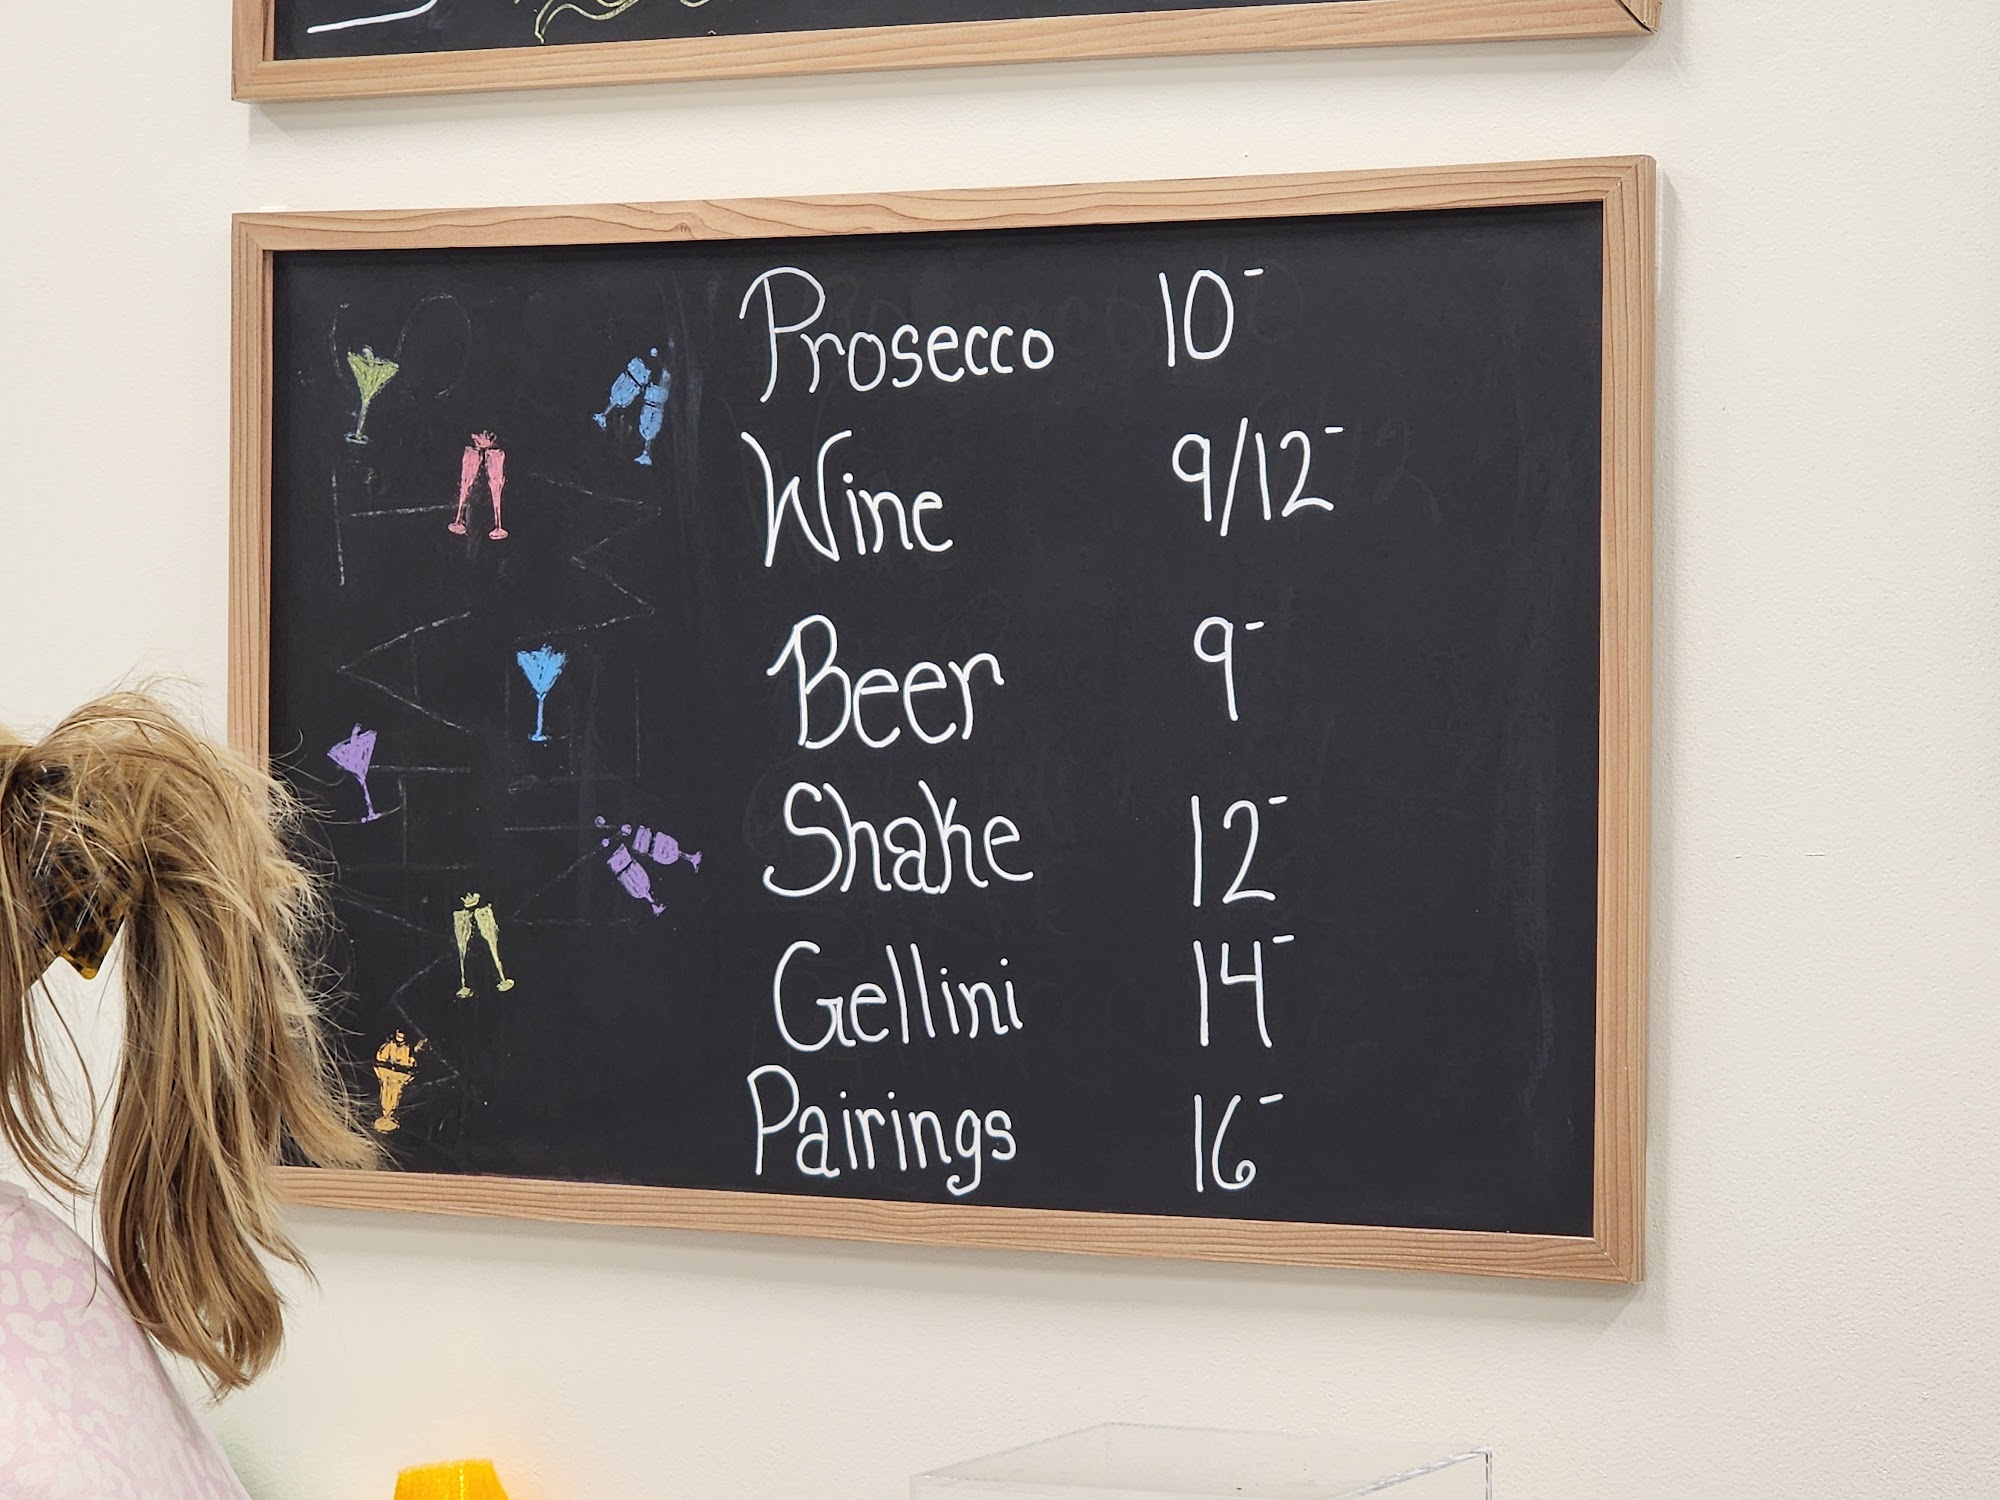 Prosecco 10-
Wine 9/12-
Beer 9-
Shake 12-
Gellini 14-
Pairings 16-